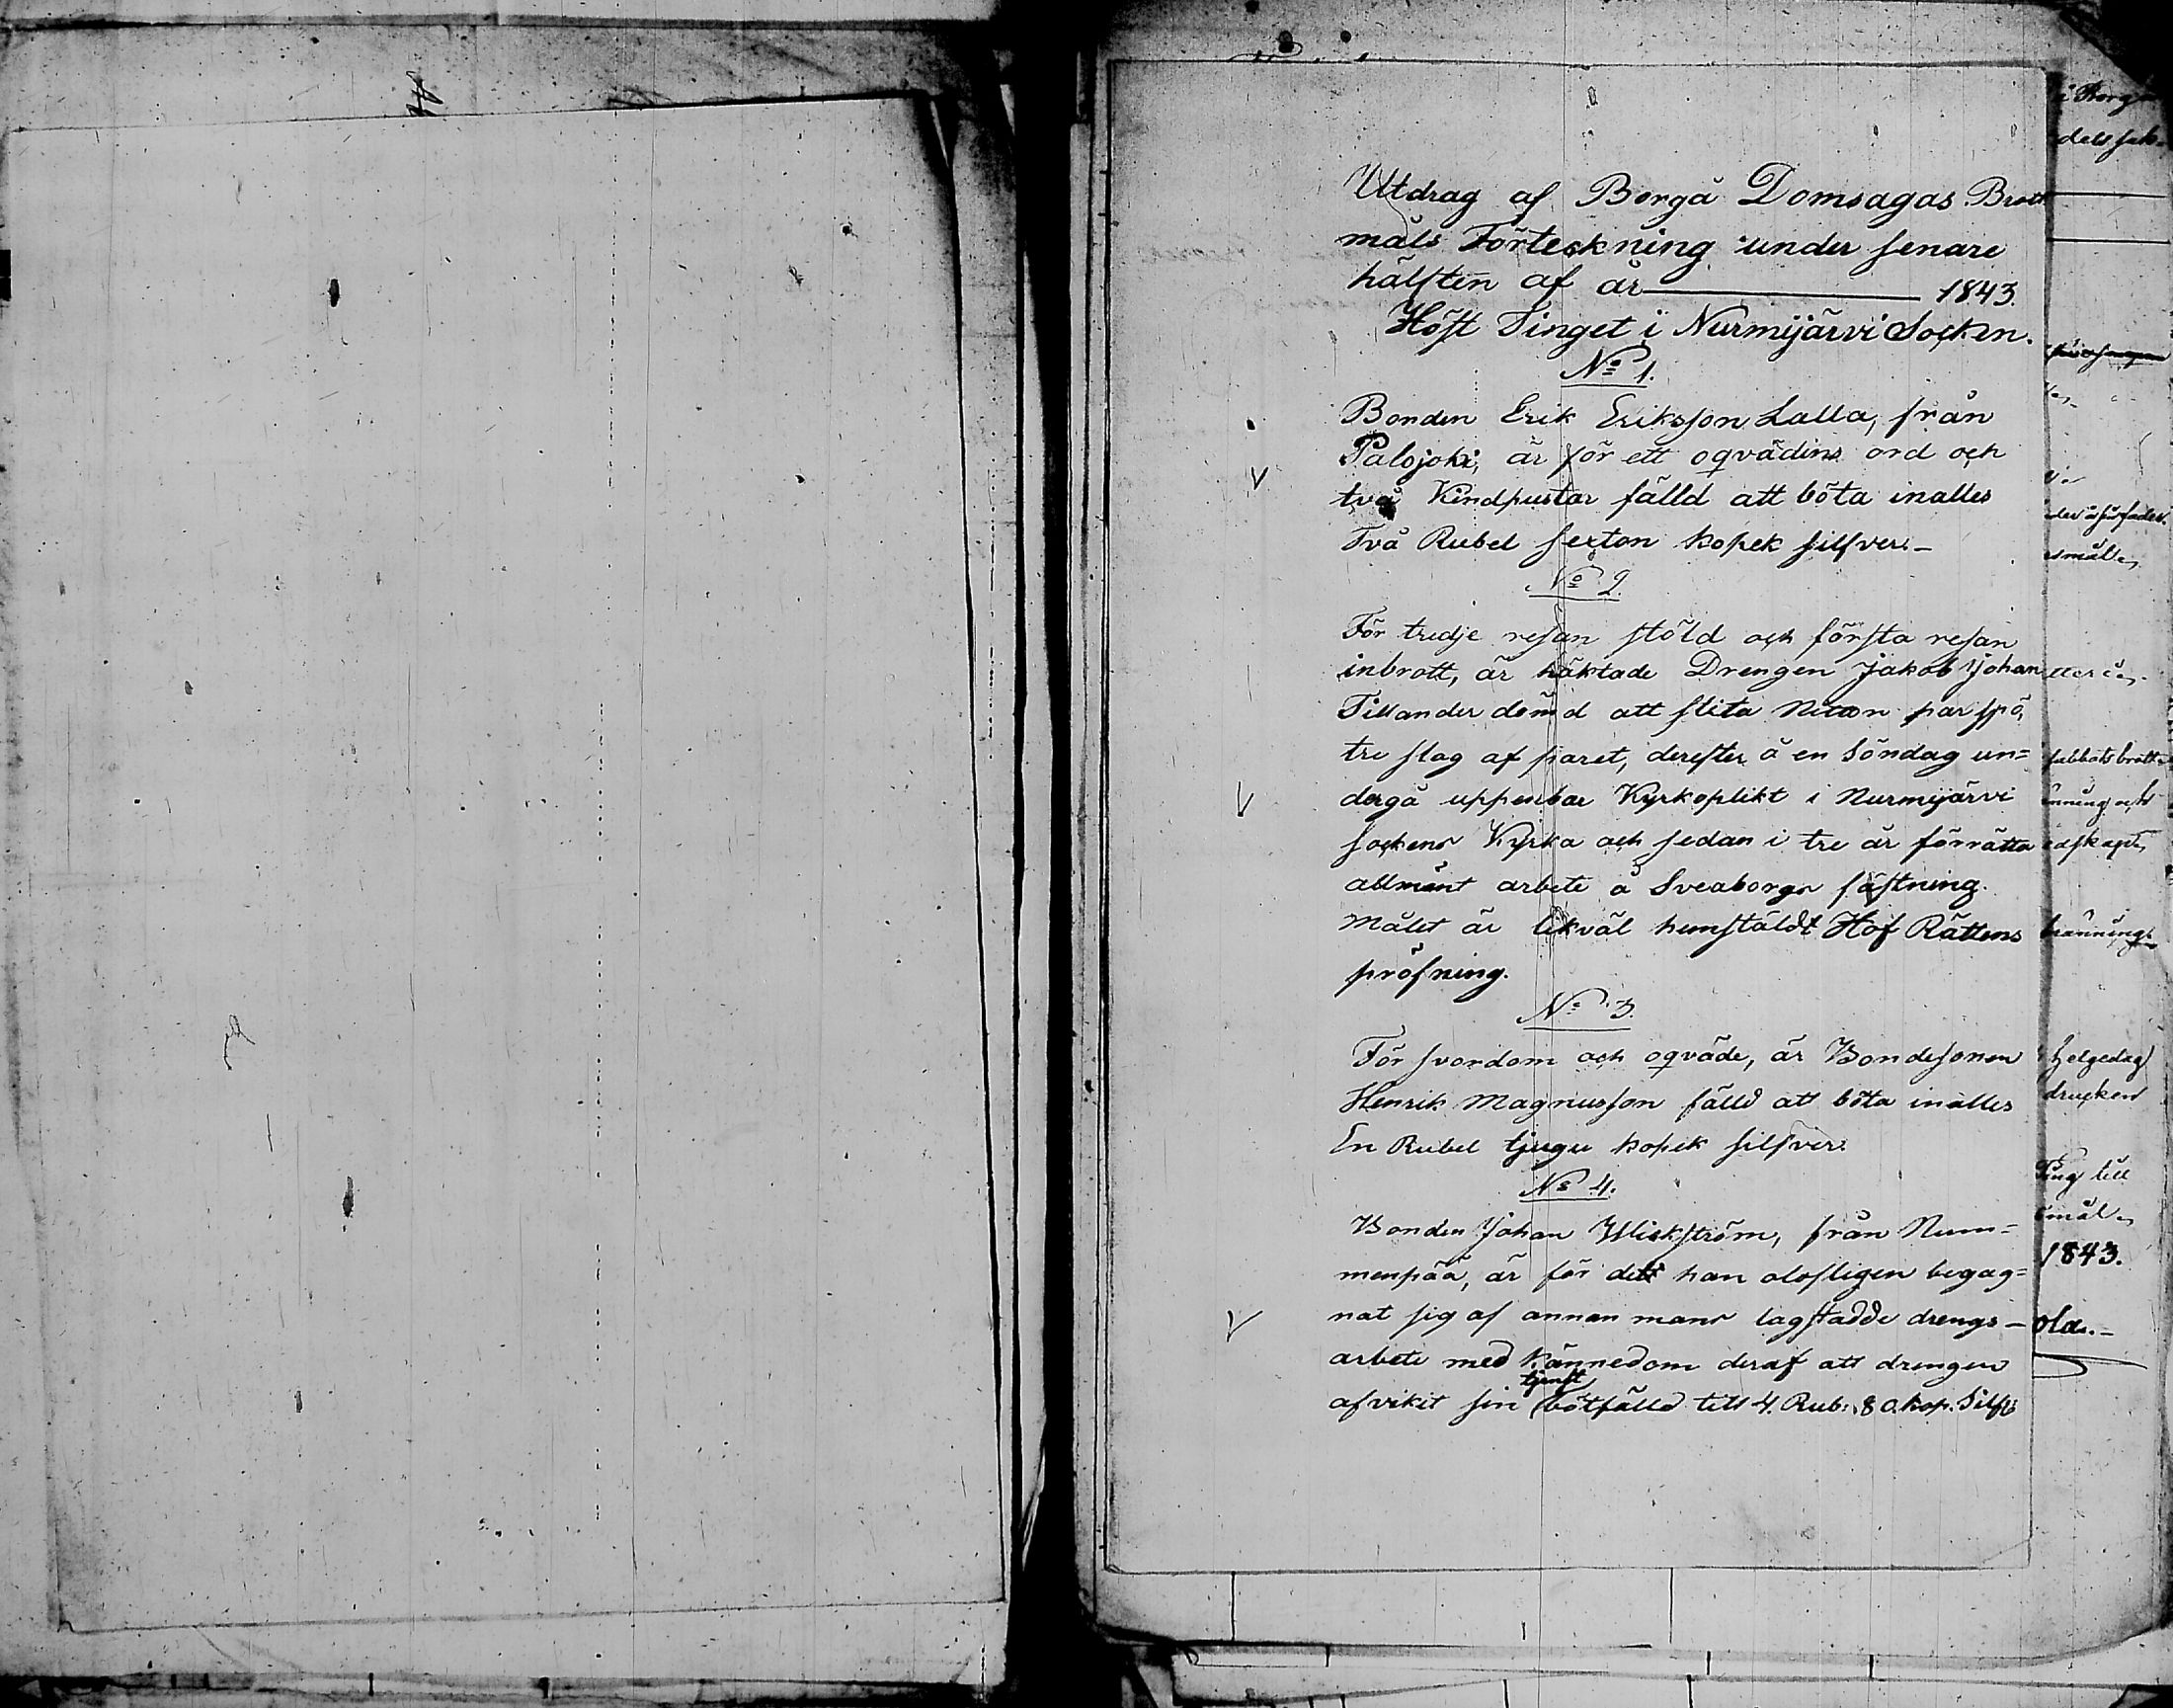 Utdrag af Borgå Domsagas Brott
måls Förteckning under senare
hälften af år 1843.
Höst Tinget i Nurmijärvi Socken.
No 1.
Bonden Erik Eriksson Lalla, från
Palojoki, är för ett oqvädins ord och
två Kindpustar fälld att böta inalles
Två Rubel sexton kopek silfver.-
No 2.
För tredje resan stöld och första resan
inbrott, är häktade Drengen Jakob Johan
Tillander dömd att slita Nitton par spö,
tre slag af paret, derefter å en Söndag un=
dergå uppenbar Kyrkoplikt i Nurmijärvi
sockens Kyrka och sedan i tre år förrätta
allmänt arbete å Sveaborgs fästning.
Målet är likväl hemstäldt Hof Rättens
pröfning.
No 3.
För svordom och oqväde, är Bondesonen
Henrik Magnusson fälld att böta inalles
En Rubel tjugu kopek silfver.
No 4.
Bonden Johan Wickström, från Num=
menpää, är för det han olofligen begag=
nat sig af annan mans lagstadde drengs-
arbete med kännedom deraf att drengen
afvikit sin tjenst bötfälld till 4. Rub. 80. kop. Silfv
dels sak-
smål.
sabbats brott
brännings
helgedag
drucken
Ting till
mål.
1843.